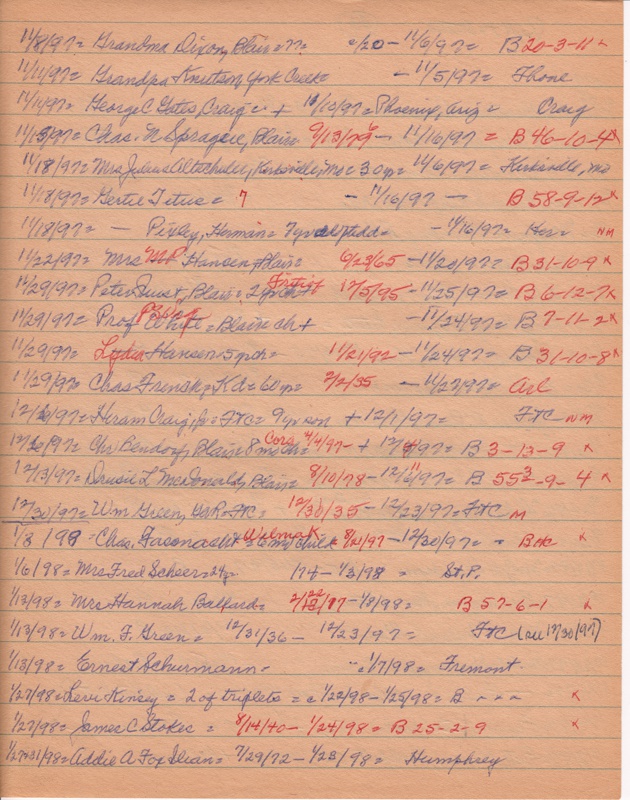 11/8/97 = Grandma Dixon, Blair = ?? = c/20 - 11/6/97 = B 20-3-11 x
11/11/97 = Grandpa Knutson, York Creek = - 11/5/97 = Fhone
11/11/97 = George C Gates, Craig = + 10/10/97 = Phoenix, Ariz = Craig
11/15/97 = Chas. N Sprague, Blair 9/13/79 - 11/16/97 = B 46-10-4 x
11/18/97 = Mrs Julius Altschuler, Kirksville, Mo = 30 yr = 11/6/97 = Kirksville, Mo
11/18/97 = Gertie Tetus = 7 - 11/16/97 - B 58-9-12 x
11/18/97 = - Pixley, Herman = 7 yr old - 11/16/97 - Her = NM
11/22/97 = Mrs MP Hansen, Blair = 6/23/65 - 11/20/97 = B 31-10-9 x
11/29/97 = Peter Just, Blair = 2 yr ch + 12/5/95 - 11/25/97 = B 6-12-7 x
11/29/97 = Prof White = Blair ch + - 11/24/97 = B 7-11-2 x
11/29/97 = Lydia Hansen 5 yr ch = 11/21/92 - 11/24/97 = B 31-10-8 x
11/29/97 = Chas French, Kd = 60 yr = 2/2/35 - 11/27/97 = Arl
12/ /97 = Hiram Craig, Jr = FtC = 9 yr son + 12/1/97 = FtC NM
12/ /97 = Chr Bendorf, Blair 8 mo ch = Cora 4/4/97 - + 12/ /97 = B 3-13-9 x
12/13/97 = Drusil L McDonald, Blair = 8/10/78 - 12/ /97 = B 55 3/2-9-4 x
12/30/97 = Wm Green, = FtC = 12/30/35 - 12/23/97 = FtC M
1/3/98 = Chas. = 6 mo child Wilma K = 8/21/97 - 12/30/97 = = x
1/6/98 = Mrs Fred Scheer = 24 yr 174 - 1/3/98 = St. P.
1/13/98 = Mrs Hannah Balfard = 2/ /17 - 1/8/98 = B 57-6-1 x
1/13/98 = Wm. F. Green = 12/31/36 - 12/23/97 = FtC (see 12/30/97)
1/13/98 = Ernest Schurmann - " c 1/7/98 = Fremont
1/27/98 = Levi Kinsey = 2 of triplets = c 1/22/98 - 1/25/98 = B - - - x
1/27/98 = James C Stokes = 8/14/40 - 1/24/98 = B 25-2-9 x
1/27+31/98 = Addie A Fox Ilian = 7/29/72 - 1/23/98 = Humphrey